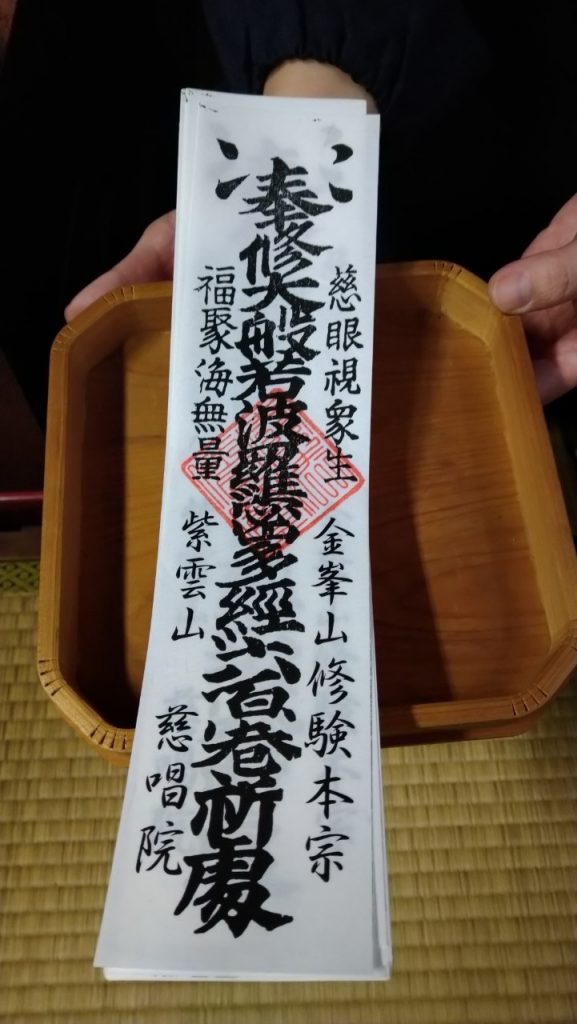 慈眼視衆生 金峯山修験本宗
奉修大般若波羅蜜多經六百巻祈處
福聚海無量 紫雲山 慈唱院